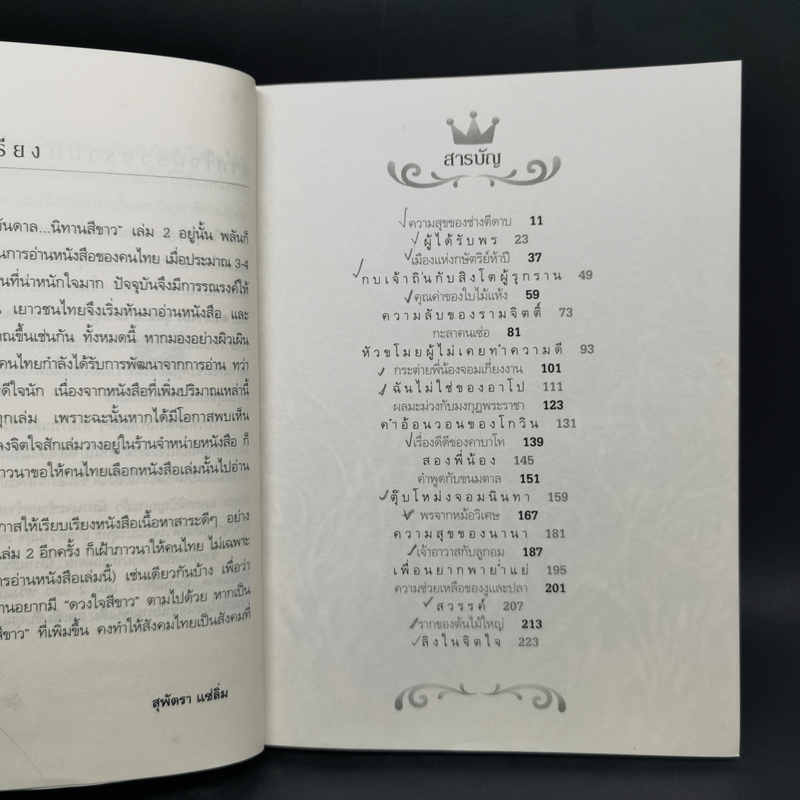 รียง
ันดาล...นิทานสีขาว” เล่ม 2 อยู่นั้น พลันก็
นการอ่านหนังสือของคนไทย เมื่อประมาณ 3-4
นที่น่าหนักใจมาก ปัจจุบันจึงมีการรณรงค์ให้
เยาวชนไทยจึงเริ่มหันมาอ่านหนังสือ และ
าณขึ้นเช่นกัน ทั้งหมดนี้ หากมองอย่างผิวเผิน
คนไทยกำลังได้รับการพัฒนาจากการอ่าน ทว่า
รดีใจนัก เนื่องจากหนังสือที่เพิ่มปริมาณเหล่านี้
ทุกเล่ม เพราะฉะนั้นหากได้มีโอกาสพบเห็น
ลงจิตใจสักเล่มวางอยู่ในร้านจำหน่ายหนังสือ ก็
าวนาขอให้คนไทยเลือกหนังสือเล่มนั้นไปอ่าน
กาสให้เรียบเรียงหนังสือเนื้อหาสาระดีๆ อย่าง
เล่ม 2 อีกครั้ง ก็เฝ้าภาวนาให้คนไทย ไม่เฉพาะ
ารอ่านหนังสือเล่มนี้) เช่นเดียวกันบ้าง เพื่อว่า
านอยากมี “ดวงใจสีขาว” ตามไปด้วย หากเป็น
สีขาว” ที่เพิ่มขึ้น คงทำให้สังคมไทยเป็นสังคมที่
สุพัตรา แซ่ลิ่ม
สารบัญ
ความสุขของช่างตีดาบ 11
ผู้ได้รับพร 23
เมืองแห่งกษัตริย์ห้าปี 37
กบเจ้าถิ่นกับสิงโตผู้รุกราน 49
คุณค่าของใบไม้แห้ง 59
ความลับของรามจิตติ์ 73
กะลาคนเซ่อ 81
หัวขโมยผู้ไม่เคยทำความดี 93
กระต่ายพี่น้องจอมเกี่ยงงาน 101
ฉันไม่ใช่ของอาโป 111
ผลมะม่วงกับมงกุฎพระราชา 123
คำอ้อนวอนของโกวิน 131
เรื่องดีดีของคาบาโท 139
สองพี่น้อง 145
คำพูดกับขนมตาล 151
ตุ๊บโหม่งจอมนินทา 159
พรจากหม้อวิเศษ 167
ความสุขของนานา 181
เจ้าอาวาสกับลูกอม 187
เพื่อนยากพายำแย่ 195
ความช่วยเหลือของงูและปลา 201
สวรรค์ 207
รากของต้นไม้ใหญ่ 213
ลิงในจิตใจ 223